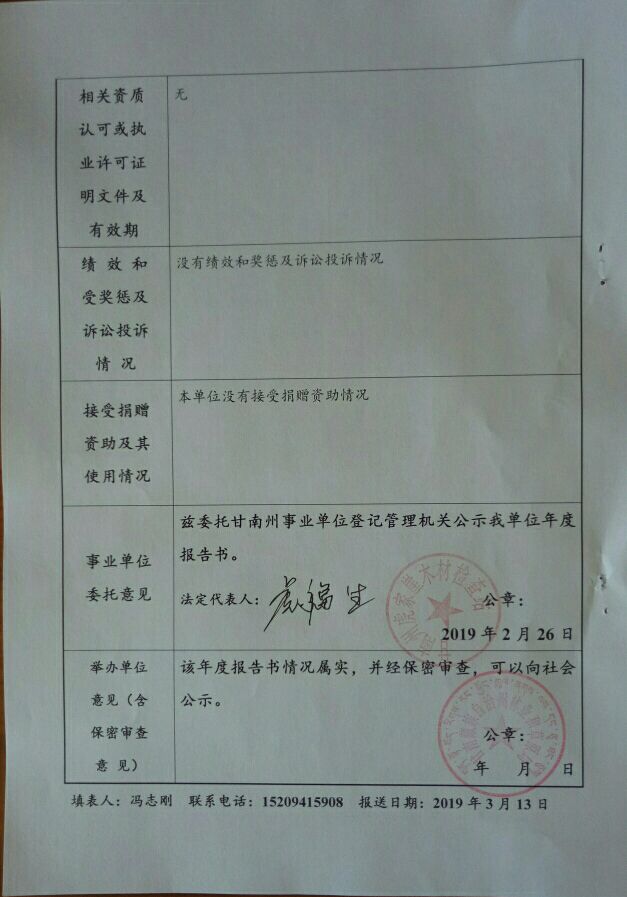 相关资质
认可或执
业许可证
明文件及
有效期
无
绩效和
受奖惩及
诉讼投诉
情况
没有绩效和奖惩及诉讼投诉情况
接受捐赠
资助及其
使用情况
本单位没有接受捐赠资助情况
事业单位
委托意见
兹委托甘南州事业单位登记管理机关公示我单位年度
报告书。
法定代表人：
公章：
2019 年 2 月 26 日
举办单位
意见（含
保密审查
意见）
该年度报告书情况属实，并经保密审查，可以向社会
公示。
公章：
年 月 日
填表人：冯志刚 联系电话：15209415908 报送日期：2019 年 3 月 13 日